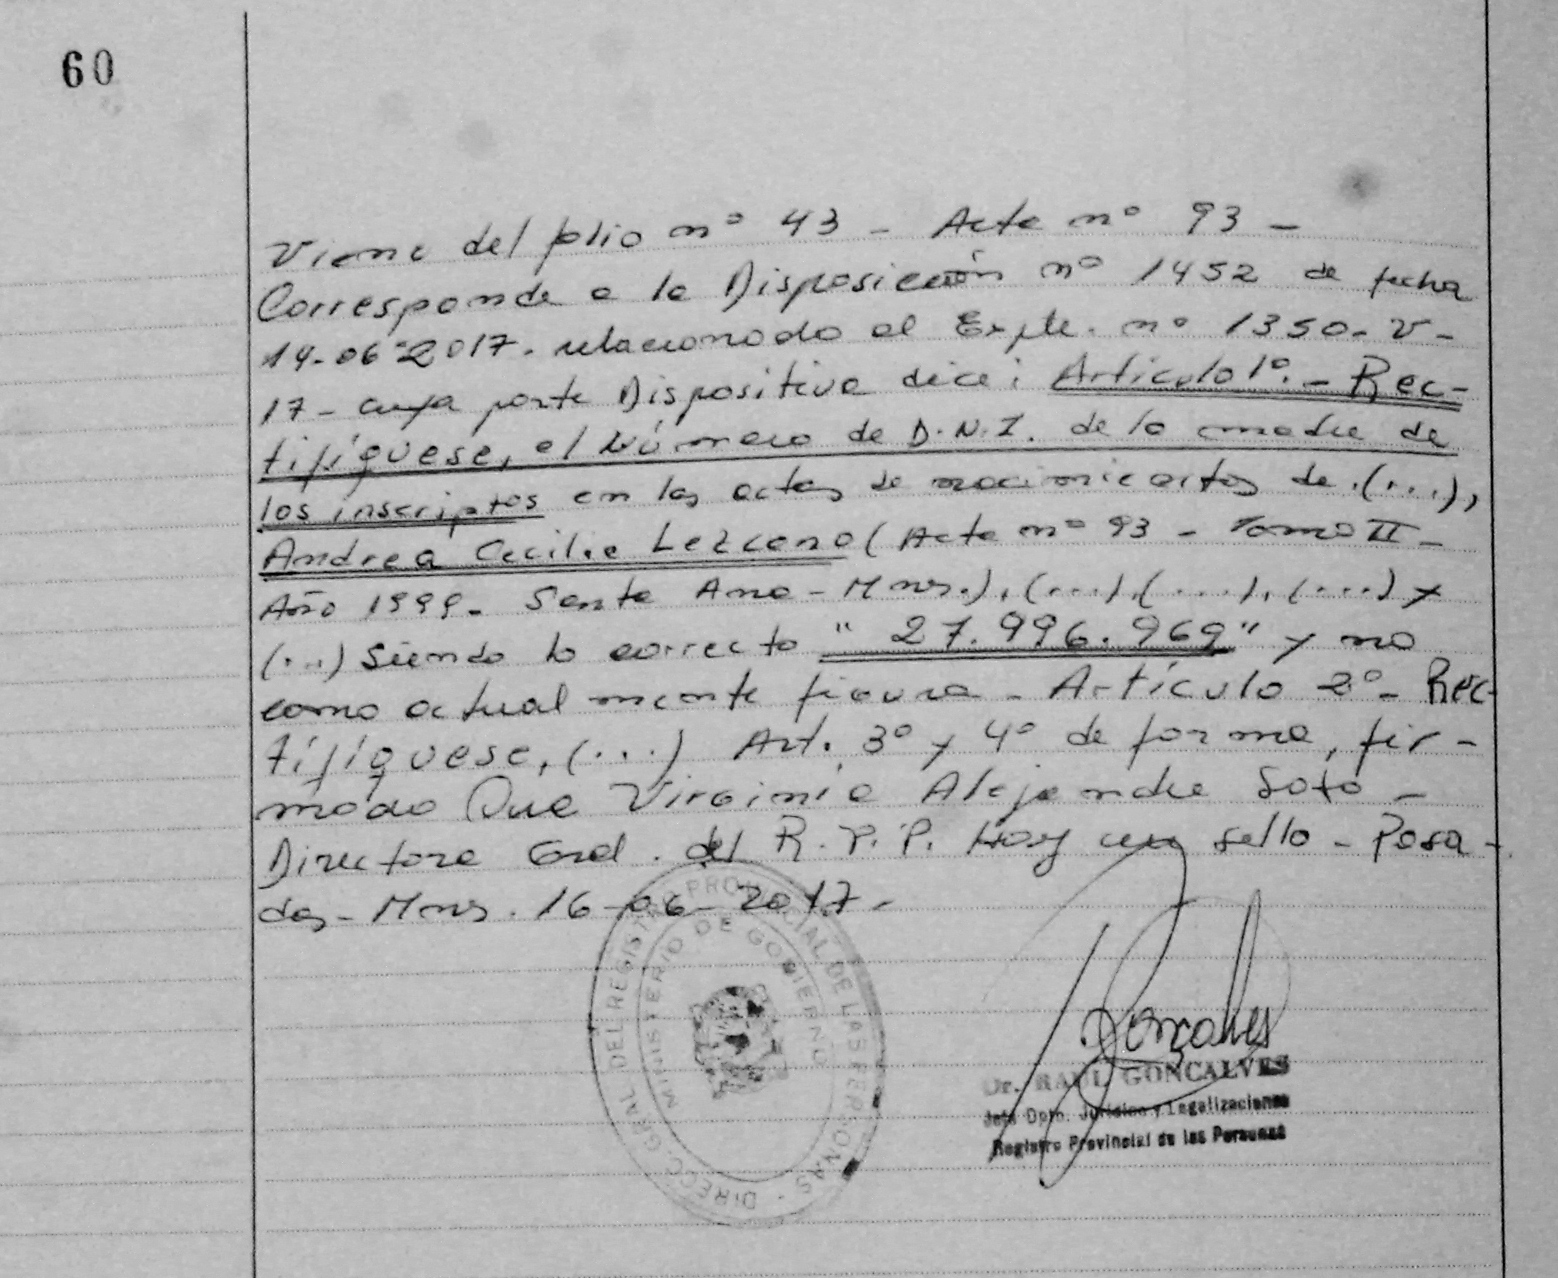 60
Viene del folio nº 43 - Acta nº 93 -
Corresponde a la Disposición nº 1452 de fecha
14-06-2017. relacionado al Expte. nº 1350-V-
17- cuya parte Dispositiva dice: Artículo 1º.- Rec-
tifíquese, el Número de D.N.I. de la madre de
los inscriptos en las actas de nacimientos de (...),
Andrea Cecilia Lezcano (Acta nº 93 - Tomo II -
Año 1999. Santa Ana - Mns.), (...), (...), (...) y
(...) Siendo lo correcto "27.996.969" y no
como actualmente figura - Artículo 2º- Rec-
tifíquese, (...) Art. 3º y 4º de forma, fir-
mado Dra Virginia Alejandra Soto -
Directora Gral. del R.P.P. Hay un sello - Posa-
das - Mns. 16-06-2017.
DIRECC. GRAL DEL REGISTRO PROVINCIAL DE LAS PERSONAS
MINISTERIO DE GOBIERNO
Gonçalves
Dr. RAUL GONCALVES
Jefe Dpto. Jurídico y Legalizaciones
Registro Provincial de las Personas